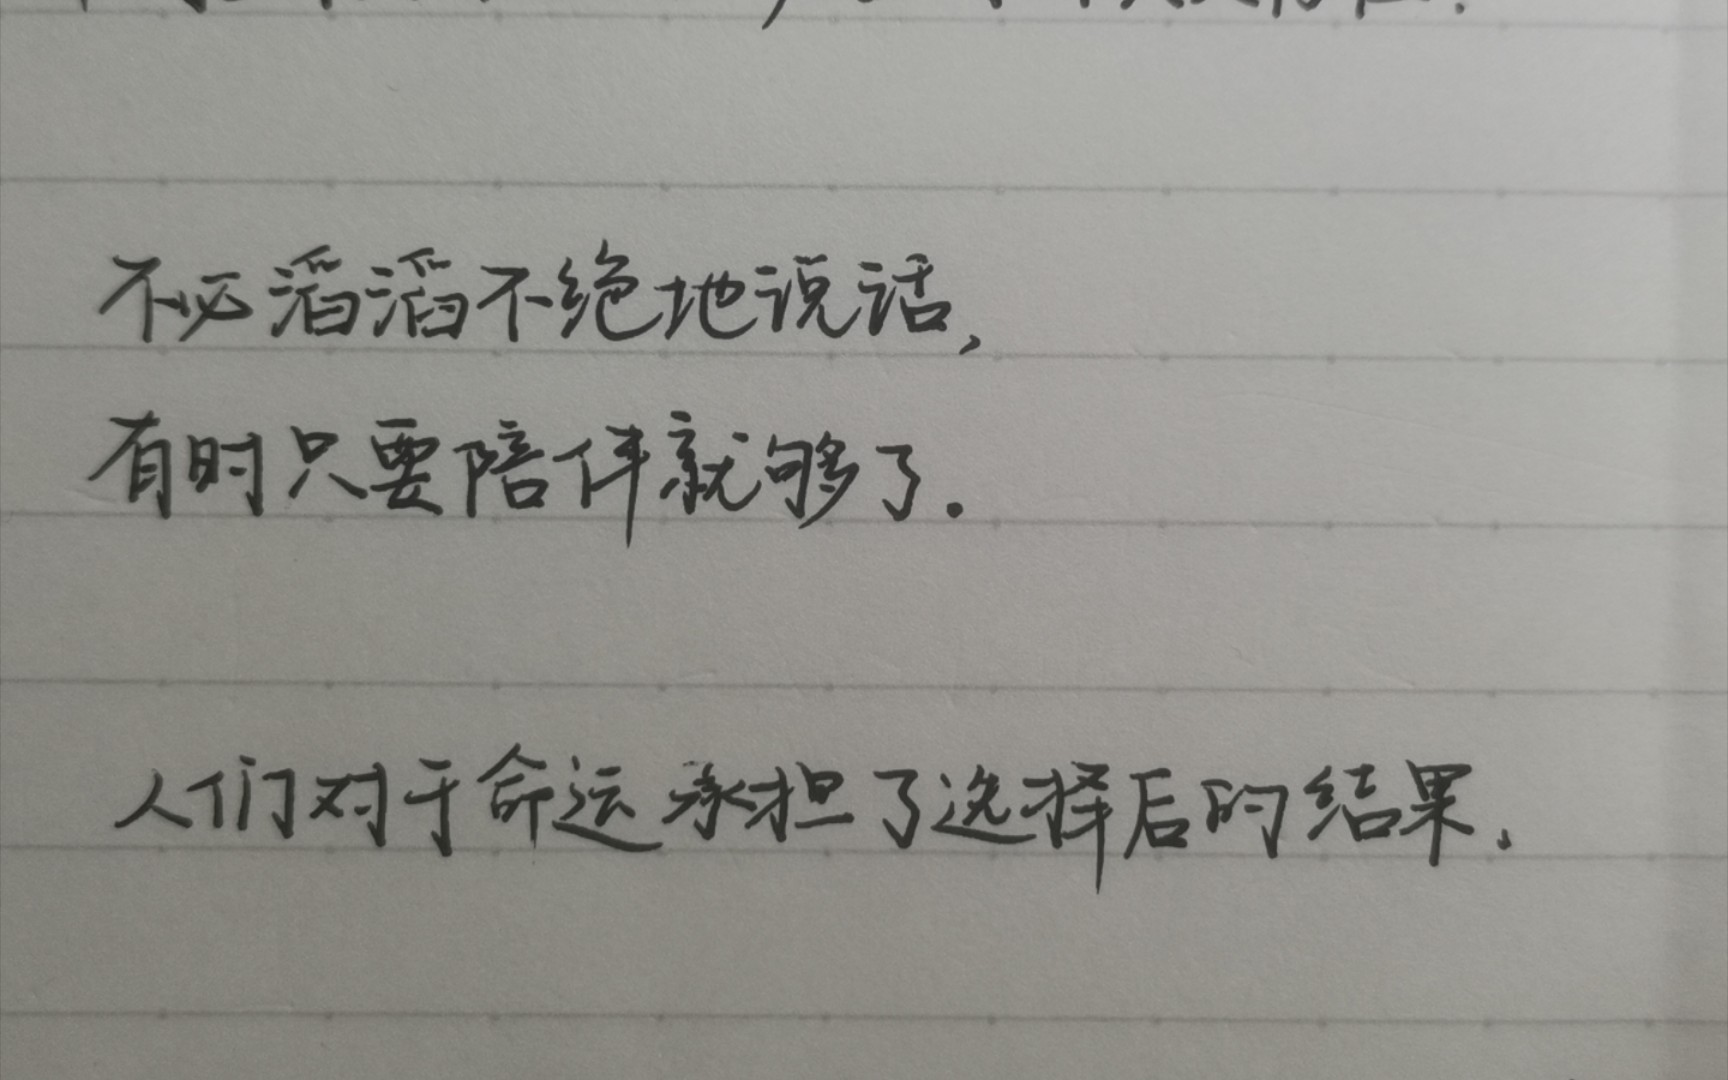 不必滔滔不绝地说话,
有时只要陪伴就够了.
人们对于命运承担了选择后的结果.